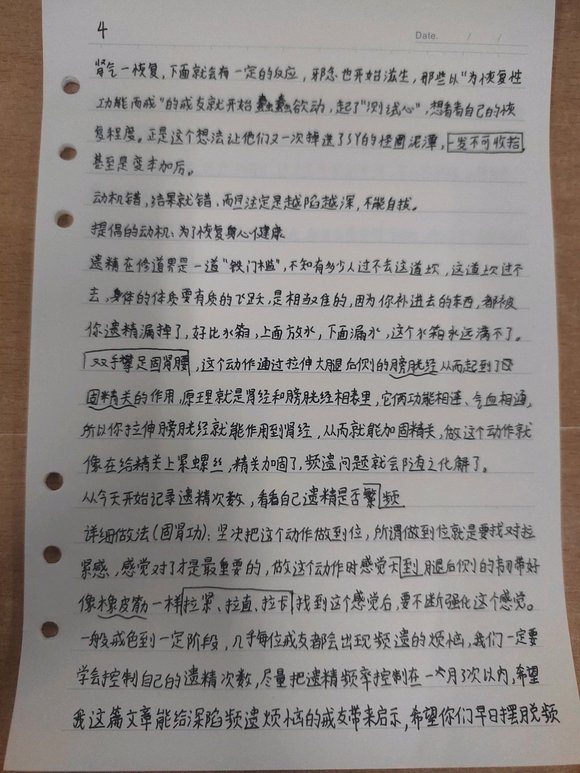 4
Date. / /
肾气一恢复，下面就会有一定的反应，邪念也开始滋生，那些以"为恢复性
功能而戒"的戒友就开始蠢蠢欲动，起了"测试心"，想看看自己的恢
复程度。正是这个想法让他们又一次掉进了SY的怪圈泥潭，一发不可收拾，
甚至是变本加厉。
动机错，结果就错，而且注定是越陷越深，不能自拔。
提倡的动机：为了恢复身心健康
遗精在修道界是一道"铁门槛"，不知有多少人过不去这道坎，这道坎过不
去，身体的体质要有质的飞跃，是相当难的，因为你补进去的东西，都被
你遗精漏掉了，好比水箱，上面放水，下面漏水，这个水箱永远满不了。
双手攀足固肾腰，这个动作通过拉伸大腿后侧的膀胱经从而起到了
固精关的作用，原理就是肾经和膀胱经相表里，它俩功能相连、气血相通，
所以你拉伸膀胱经就能作用到肾经，从而就能加固精关，做这个动作就
像在给精关上紧螺丝，精关加固了，频遗问题就会随之化解了。
从今天开始记录遗精次数，看看自己遗精是否繁频
详细做法（固肾功）：坚决把这个动作做到位，所谓做到位就是要找对拉
紧感，感觉对了才是最重要的，做这个动作时感觉到腿后侧的韧带好
像橡皮筋一样拉紧、拉直、拉卡，找到这个感觉后，要不断强化这个感觉。
一般戒色到一定阶段，几乎每位戒友都会出现频遗的烦恼，我们一定要
学会控制自己的遗精次数，尽量把遗精频率控制在一个月3次以内，希望
我这篇文章能给深陷频遗烦恼的戒友带来启示，希望你们早日摆脱频